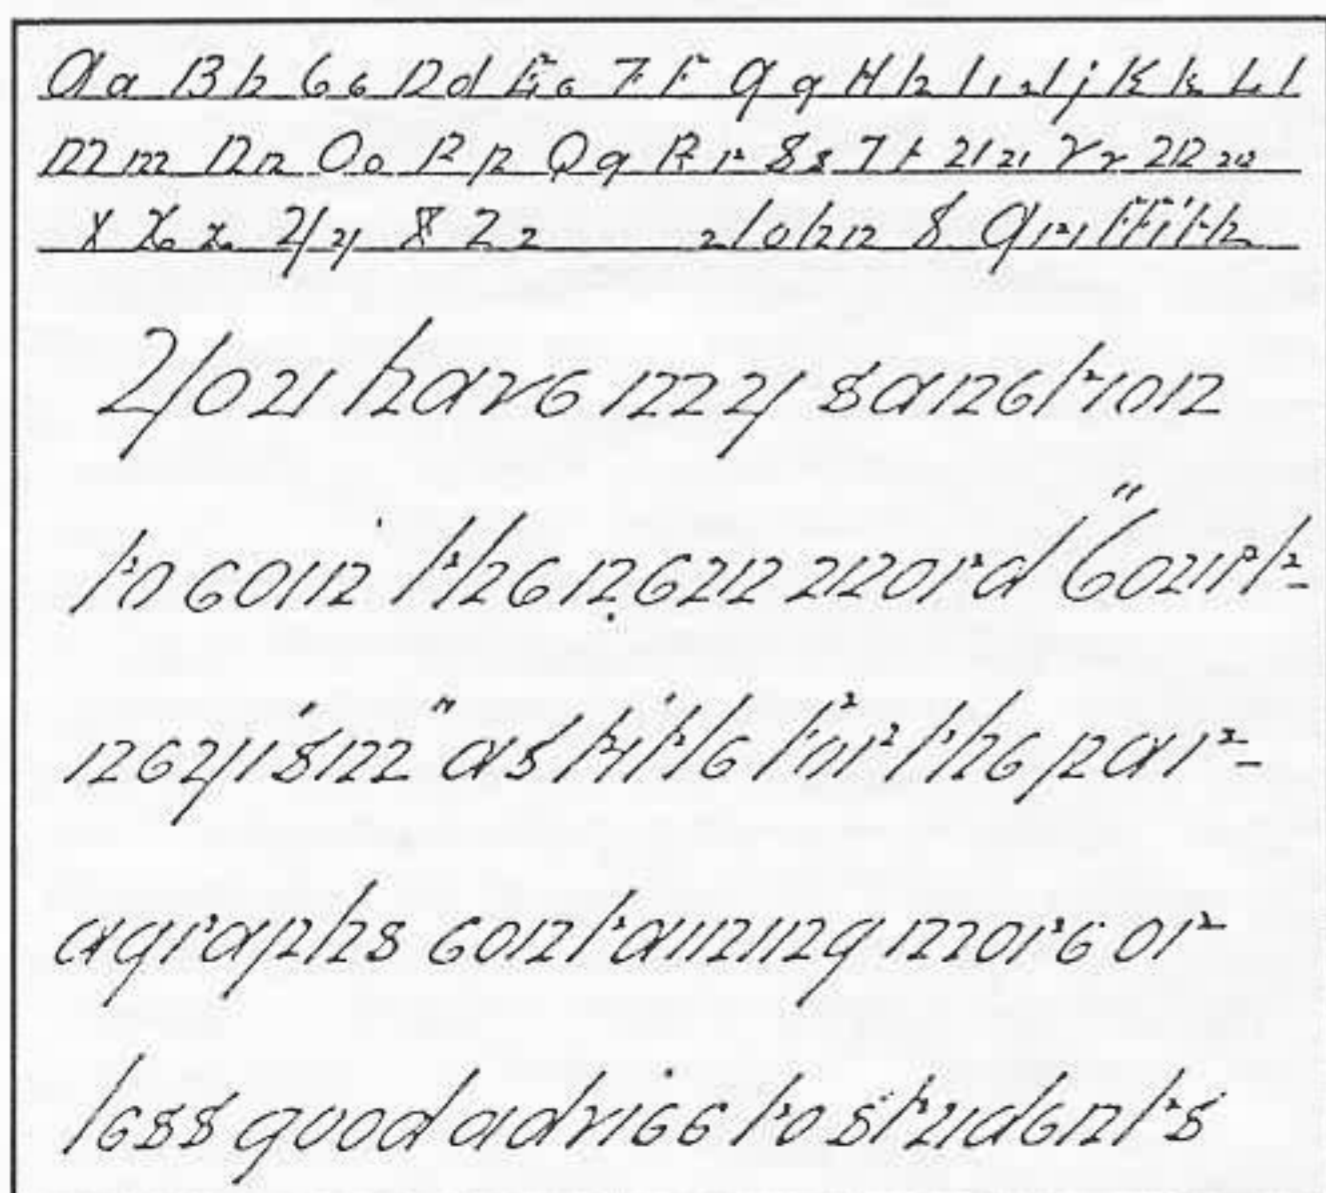 Aa Bb Cc Dd Ee Ff Gg Hh Ii Jj Kk Ll
Mm Nn Oo Pp Qq Rr Ss Tt Uu Vv Ww
X X x Yy & Zz John S Griffith
You have my sanction
to coin the new word "Court-
neyism" as title for the par-
agraphs containing more or
less good advice to students